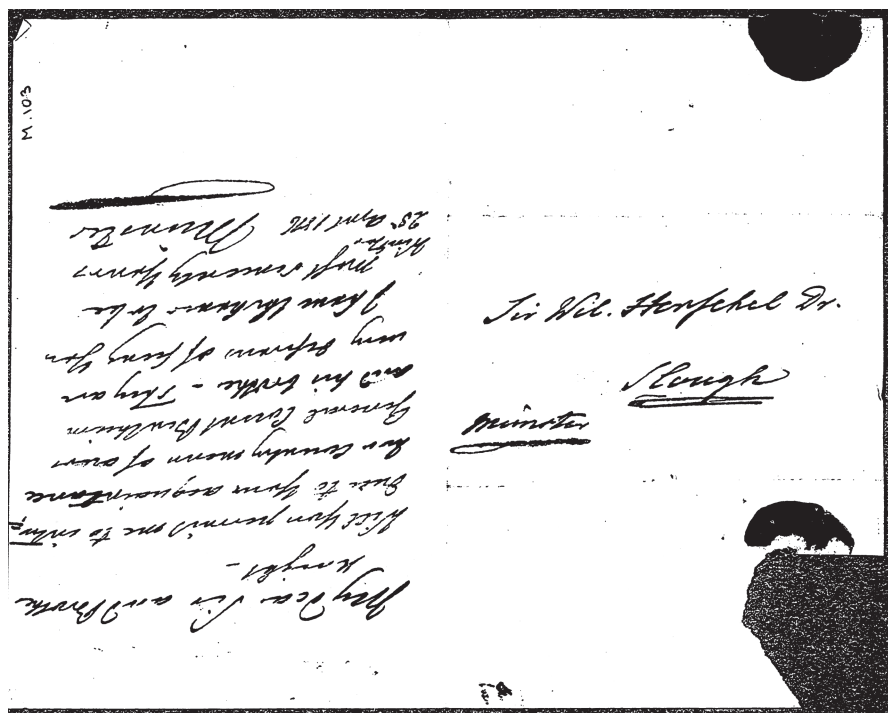 M.103
My dear Sir and Brothe
Knight –
Will you permit me to intro
duce to your acquaintance
two Country men of ours
General Count Bentheim
and his brothe – They are
very desirous of seeing You
I have the honor to be
most sincerely Yours
Munster
April
Sir Wil. Herschel Dr.
Slough
Münster